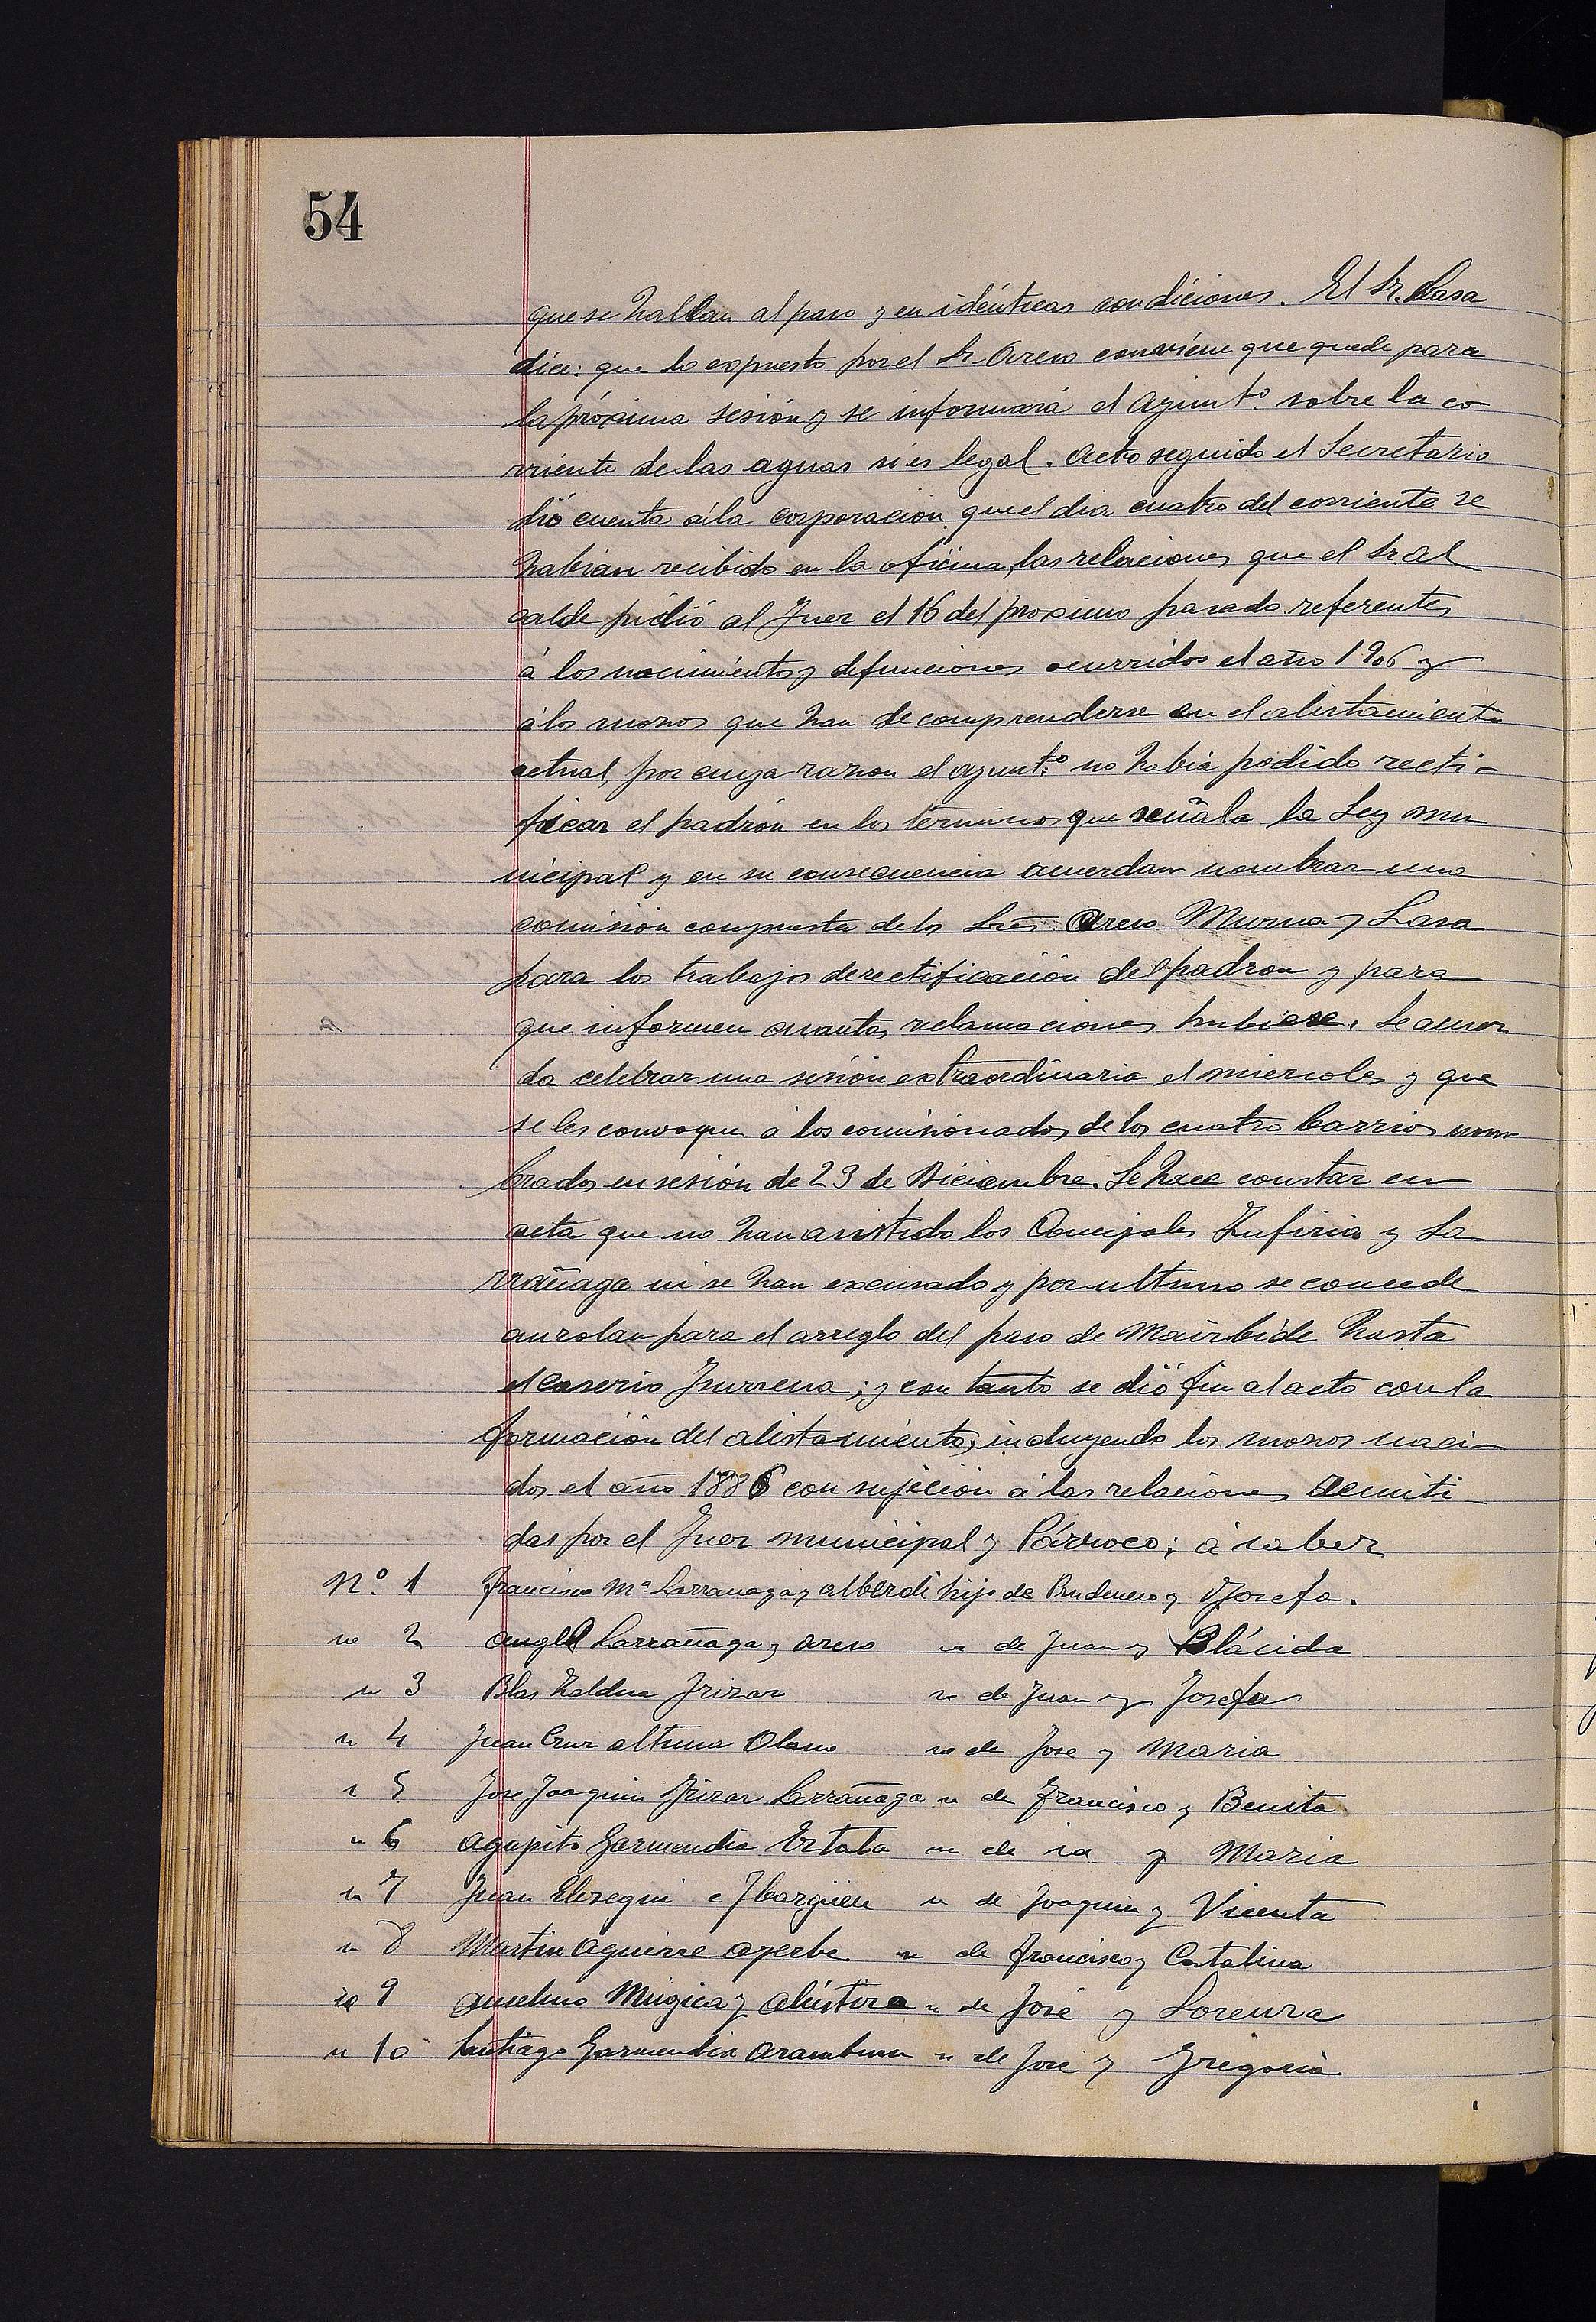 54
que se hallan al paso y en idénticas condiciones. El Sr. Lasa
dice: que lo expuesto por el Sr Areso conviene que quede para
la próxima sesión y se informará el Ayunto. sobre la co
rriente de las aguas si es legal. Acto seguido el Secretario
dió cuenta á la corporacion que el dia cuatro del corriente se
habian recibido en la oficina, las relaciones que el Sr. Al
calde pidió al Juez el 16 del proximo pasado referentes
á los nacimientos y defunciones ocurridos el año 1906 y
á los mozos que han de comprenderse en el alistamiento
actual, por cuya razon el Ayunto. no habia podido recti-
ficar el padrón en los términos que señala la Ley mu
nicipal y en su consecuencia acuerdan nombrar una
comision compuesta de los Sres. Areso Murua y Lasa
para los trabajos de rectificación del padron y para
que informen cuantas reclamaciones hubiese. Se acuer
da celebrar una sesión extraordinaria el miercoles y que
se les convoque á los comisionados de los cuatro barrios nom
brados en sesión de 23 de Diciembre. Se hace constar en
acta que no han asistido los Concejales Zufiria y La
rrañaga ni se han excusado y por ultimo se concede
auzolan para el arreglo del paso de Mairbide hasta
el Caserio Isurrena; y con tanto se dió fin al acto con la
formación del alistamiento, incluyendo los mozos naci-
dos el año 1886 con sujeción á las relaciones remiti
das por el Juez municipal y Párroco; á saber
Nº. 1 Francisco Mª Larrañaga y Alberdi hijo de Prudencio y Josefa.
" 2 Angel Larrañaga y Areso " de Juan y Plácida
" 3 Blas Zaldua Irizar " de Juan y Josefa
" 4 Juan Cruz Altuna Olano " de Jose y Maria
" 5 Jose Joaquin Irizar Larrañaga " de Francisco y Benita
" 6 Agapito Garmendia " de y Maria
" 7 Juan Elosegui e Ibarguren " de Joaquin y Vicenta
" 8 Martin Aguirre Ayerbe " de Francisco y Catalina
" 9 Anselmo Mugica y Alustiza " de José y Lorenza
" 10 Santiago Garmendia Aramburu " de José y Gregoria